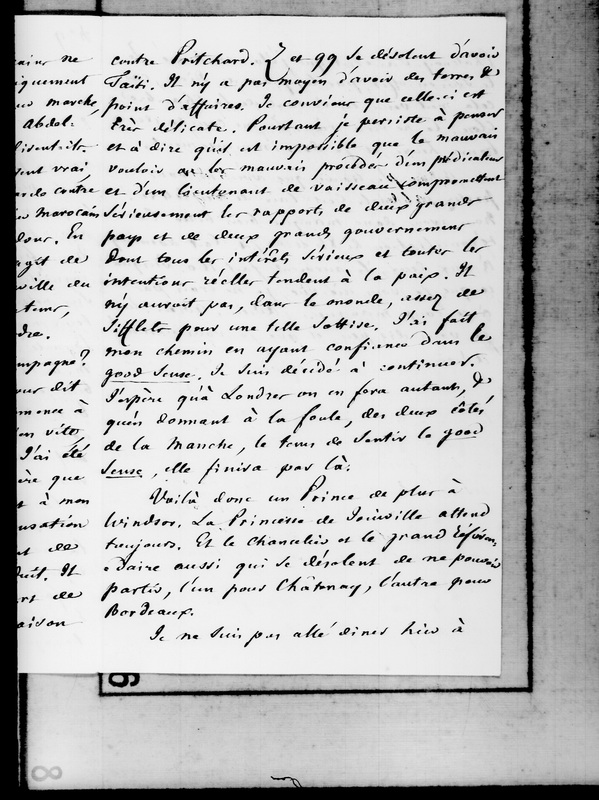 contre Pritchard. Z et 99 se désolent d'avoir
Taïti. Il n'y a pas moyen d'avoir des terres &
point d'affaires. Je conviens que celle-ci est
très délicate. Pourtant je persiste à penser
et à dire qu'il est impossible que le mauvais
vouloir ou les mauvais procédés d'un prédicateur
et d'un lieutenant de vaisseau compromettent
sérieusement les rapports de deux grands
pays et de deux grands gouvernemens
dont tous les intérêts sérieux et toutes les
intentions réelles tendent à la paix. Il
n'y auroit pas, dans le monde, assez de
sifflets pour une telle sottise. J'ai fait
mon chemin en ayant confiance dans le
good sense. Je suis décidé à continuer.
J'espère qu'à Londres on en fera autant, &
qu'en donnant à la foule, des deux côtés
de la Manche, le tems de sentir le good
sense, elle finira par là.
Voilà donc un Prince de plus à
Windsor. La Princesse de Joinville attend
toujours. Et le chancelier et le grand référen-
-daire aussi qui se désolent de ne pouvoir
partir, l'un pour Châtenay, l'autre pour
Bordeaux.
Je ne suis pas allé diner hier à
ne
marche,
Abdel-
vrai,
contre
marocain
donc. En
agit de
ville du
dre.
dit
à
J'ai été
que
à mon
de
Il
de
aison
6
8